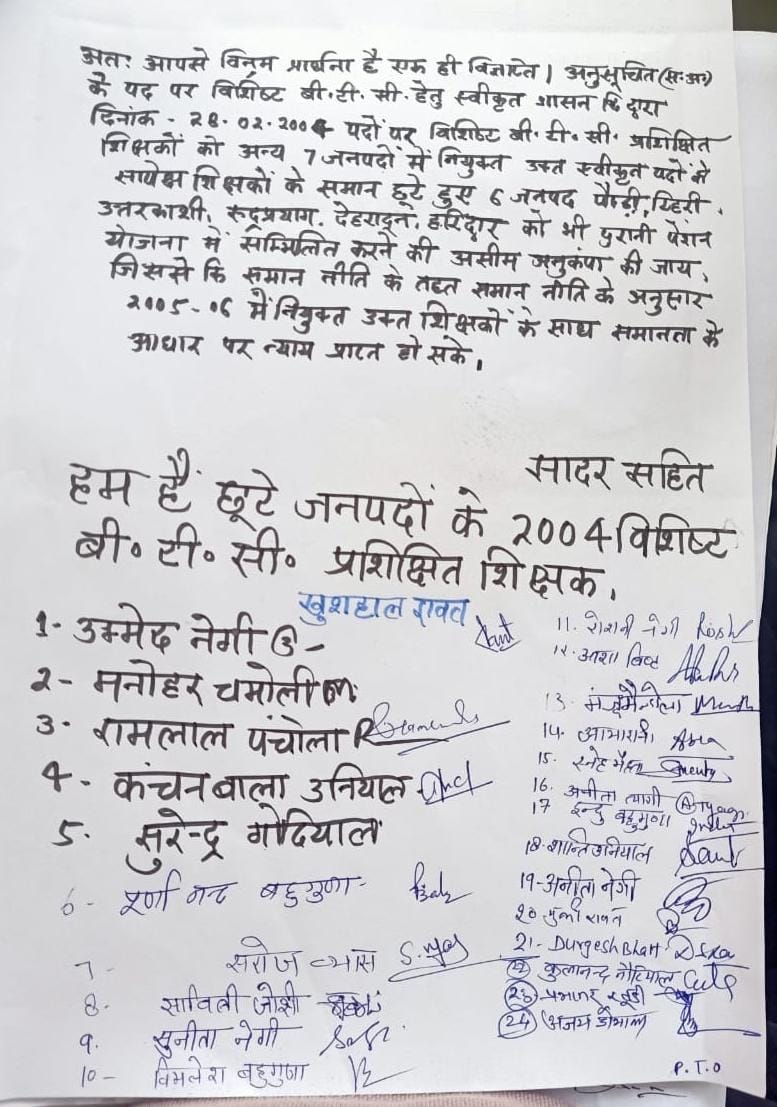 अतः आपसे विनम्र प्रार्थना है एक ही विज्ञप्ति। अनुसूचित (स.अ)
के पद पर विशिष्ट बी.टी.सी. हेतु स्वीकृत शासन द्वारा
दिनांक - 28.02.2004 पदों पर विशिष्ट बी.टी.सी. प्रशिक्षित
शिक्षकों को अन्य 7 जनपदों में नियुक्त उक्त स्वीकृत पदों के
सापेक्ष शिक्षकों के समान छूटे हुए 6 जनपद पौड़ी, टिहरी,
उत्तरकाशी, रूद्रप्रयाग, देहरादून, हरिद्वार को भी पुरानी पेंशन
योजना में सम्मिलित करने की असीम अनुकंपा की जाय,
जिससे कि समान नीति के तहत समान नीति के अनुसार
2005-06 में नियुक्त उक्त शिक्षकों के साथ समानता के
आधार पर न्याय प्राप्त हो सके,
सादर सहित
हम हैं छूटे जनपदों के 2004 विशिष्ट
बी॰ टी॰ सी॰ प्रशिक्षित शिक्षक,
खुशहाल रावत
1- उम्मेद नेगी
2- मनोहर चमोली
3- रामलाल पंचोला
4- कंचनबाला उनियाल
5. सुरेन्द्र गोदियाल
6- पूर्णानन्द बहुगुणा-
7- सरोज व्यास S.Vyas
8. सावित्री जोशी
9. सुनीता नेगी
10- विमलेश बहुगुणा
11. रोशनी नेगी
12. आशा बिष्ट
13. मंजू मैन्दोला
14. आभारानी Abha
15. स्नेह
16. अनीता त्यागी
17 इन्दु बहुगुणा Indu
18. शान्ति उनियाल
19- अनीता नेगी
20 रावत
21- Durgesh Bhatt
22 कुलानन्द नौटियाल
23- प्रभाकर
24 अजय डोभाल
P.T.O